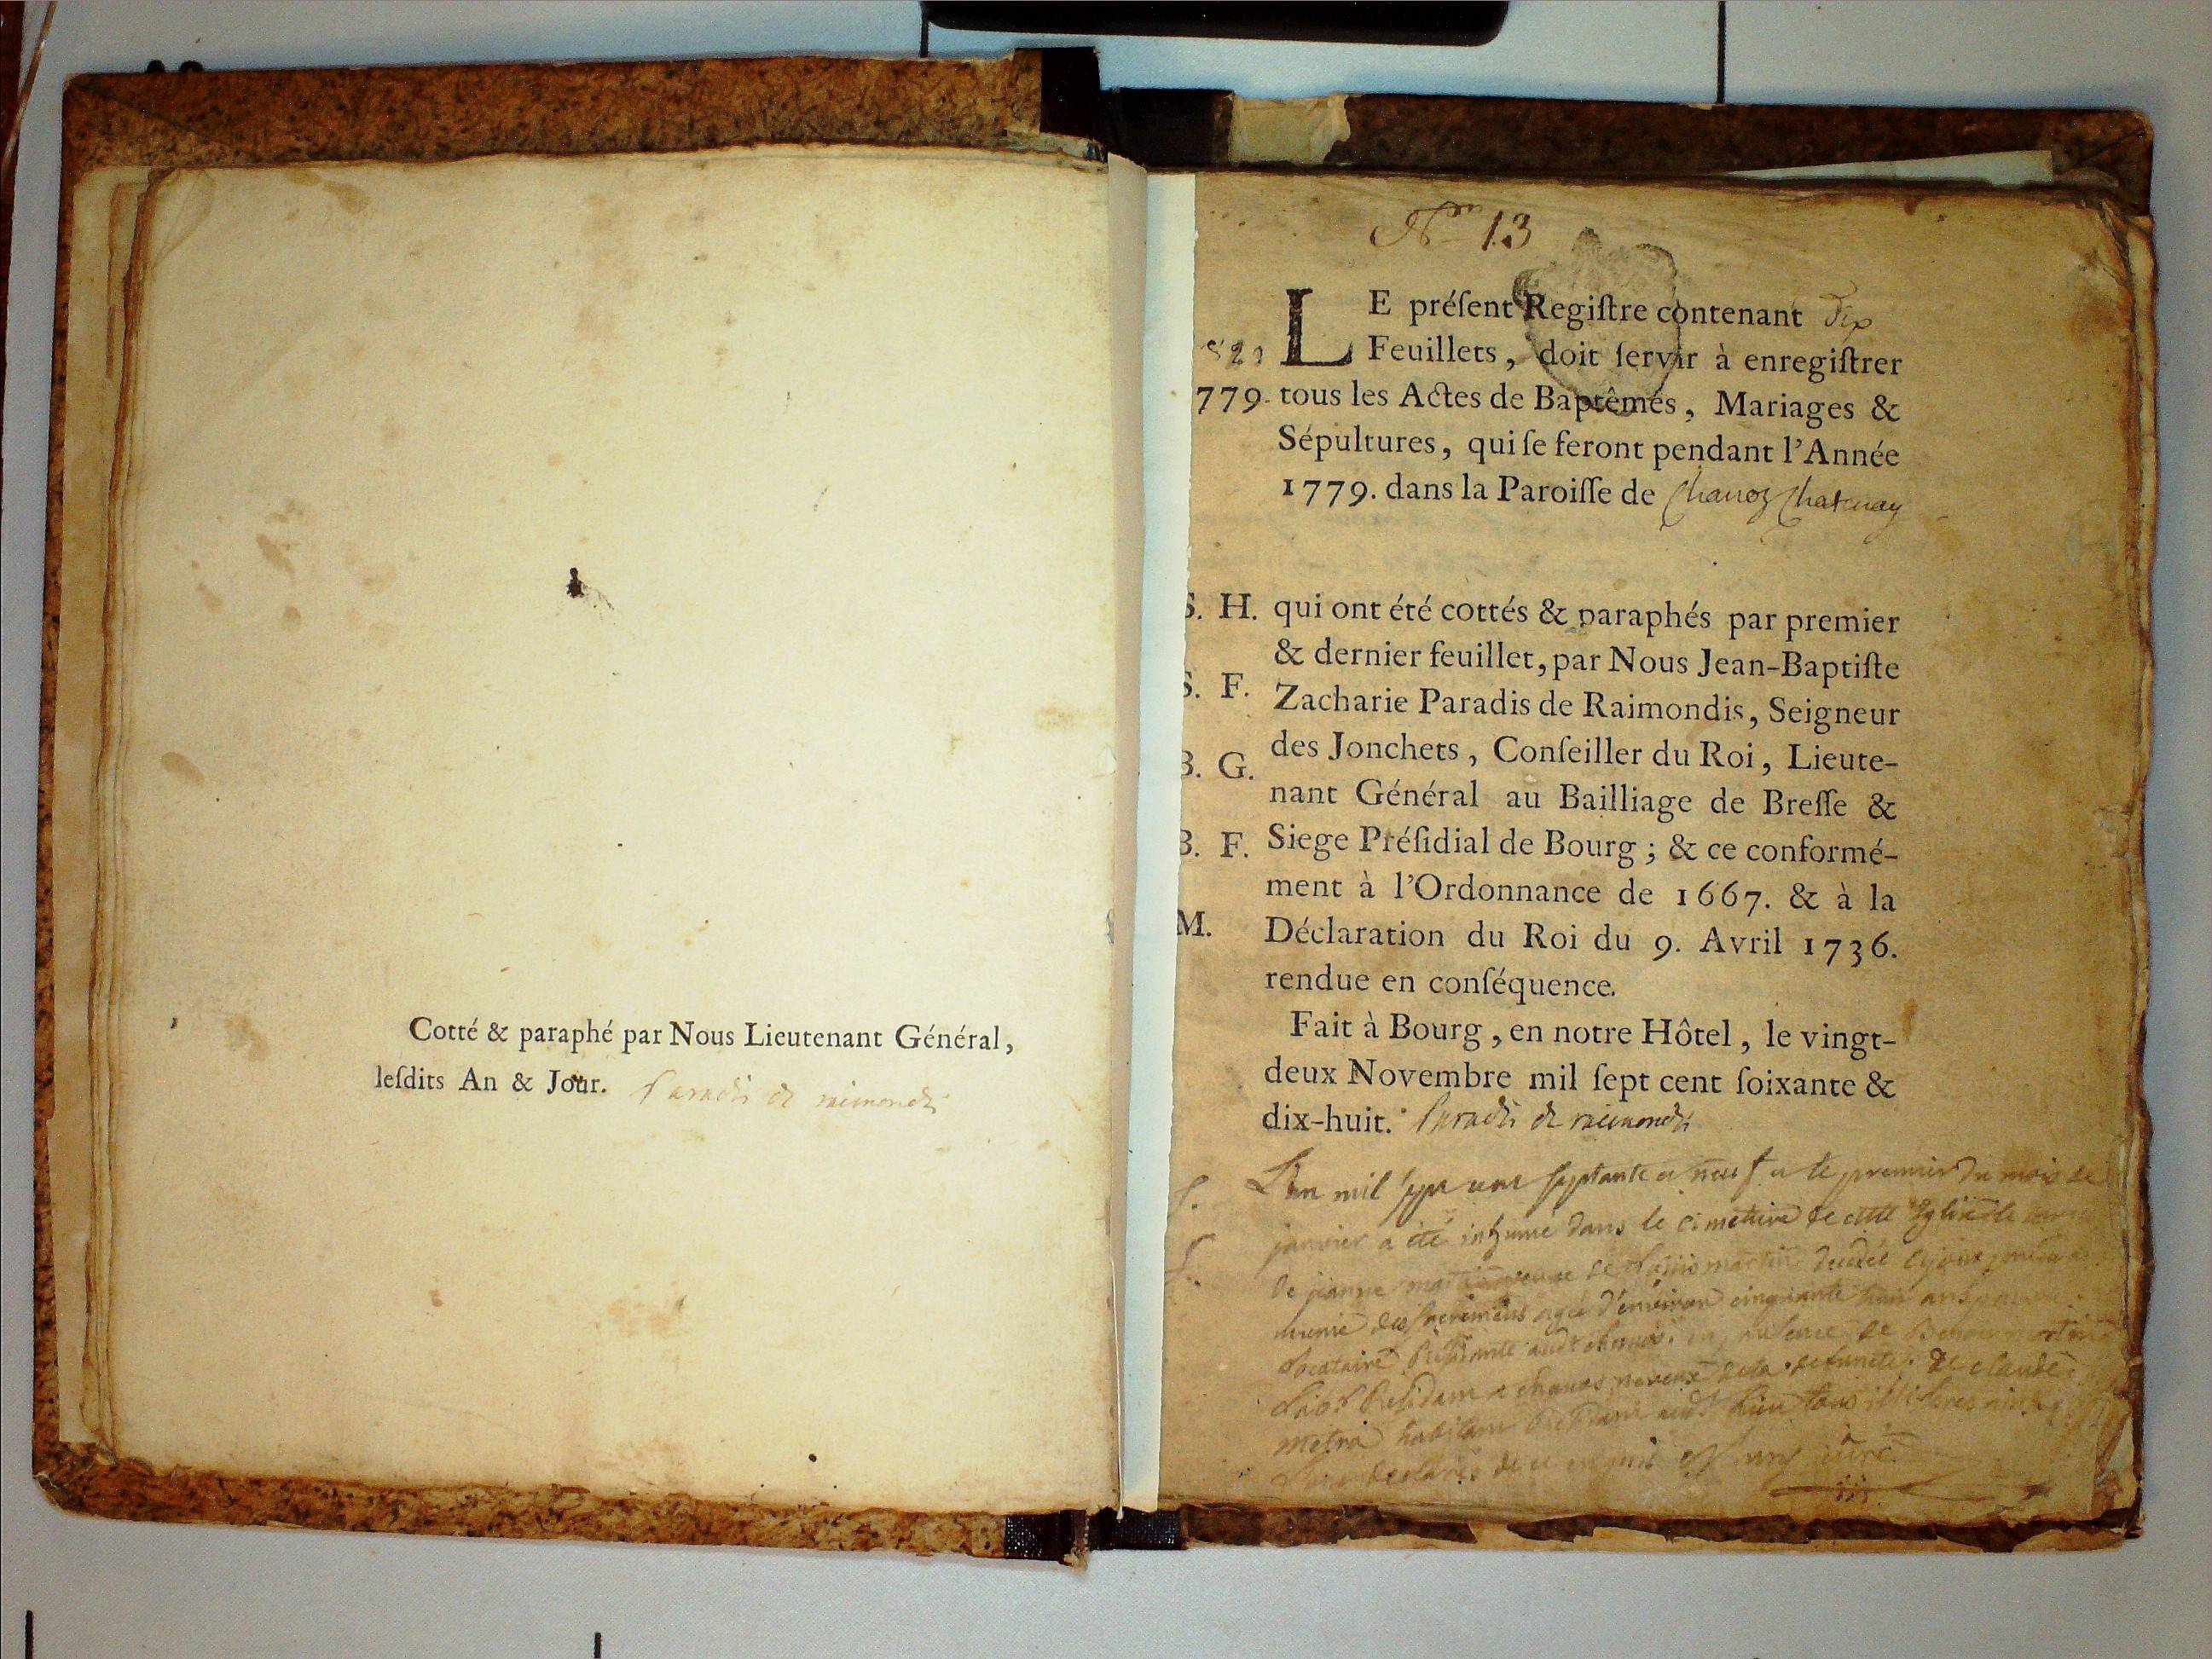 Cotté & paraphé par Nous Lieutenant Général,
leſdits An & Jour. Paradis de raimondis
N° 13
LE préſent Regiſtre contenant dix
Feuillets, doit ſervir à enregiſtrer
779. tous les Actes de Baptêmes, Mariages &
Sépultures, qui ſe feront pendant l'Année
1779. dans la Paroiſſe de Chanoz Chatenay
S. H. qui ont été cottés & paraphés par premier
& dernier feuillet, par Nous Jean-Baptiſte
S. F. Zacharie Paradis de Raimondis, Seigneur
des Jonchets, Conſeiller du Roi, Lieute-
B. G. nant Général au Bailliage de Breſſe &
B. F. Siege Préſidial de Bourg ; & ce conformé-
ment à l'Ordonnance de 1667. & à la
M. Déclaration du Roi du 9. Avril 1736.
rendue en conſéquence.
Fait à Bourg, en notre Hôtel, le vingt-
deux Novembre mil ſept cent ſoixante &
dix-huit. Paradis de raimondis
L'an mil sept cent septante et neuf et le premier du mois de
janvier a été inhumé dans le cimetiere de cette Eglise le
de jeanne veuve de martin
munie des sacremens agée d'environ cinquante ans
en presence de
de la defuncte. & claude
habitant lieu tous
de ce enquis curé